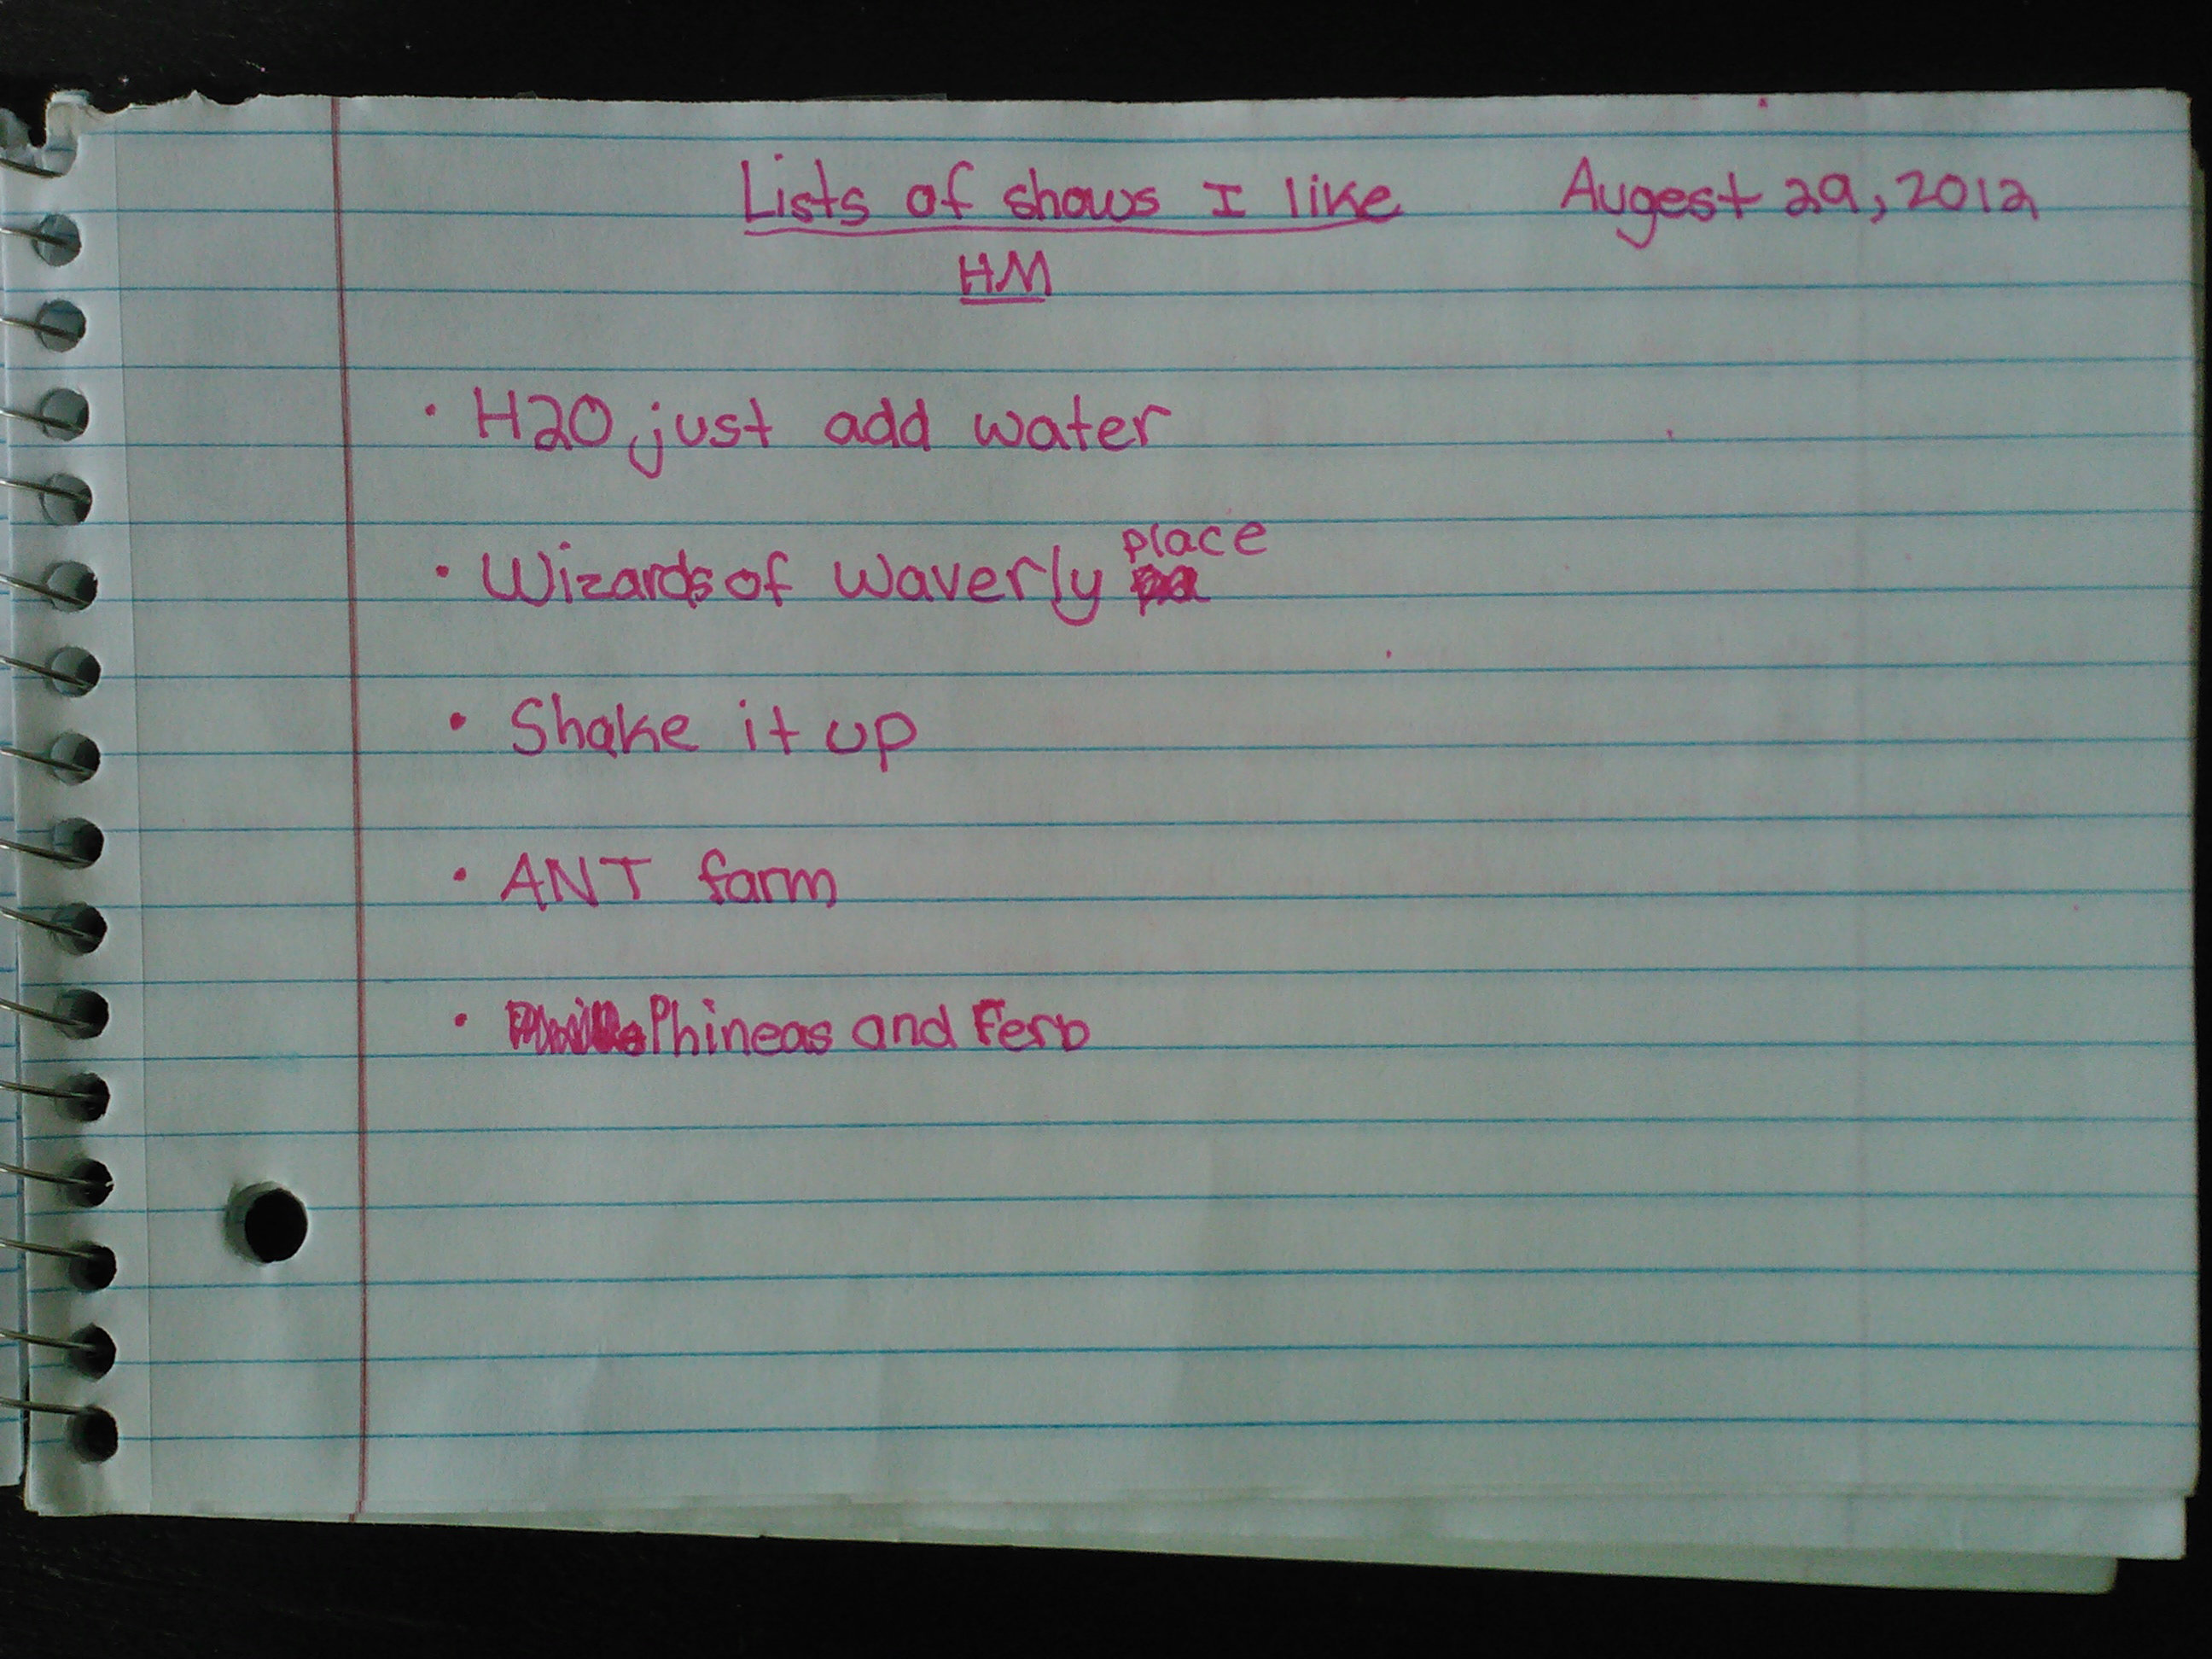 Lists of shows I like Augest 29, 2012
HM
• H2O, just add water
• Wizards of waverly place
• Shake it up
• ANT farm
• Phineas and Ferb